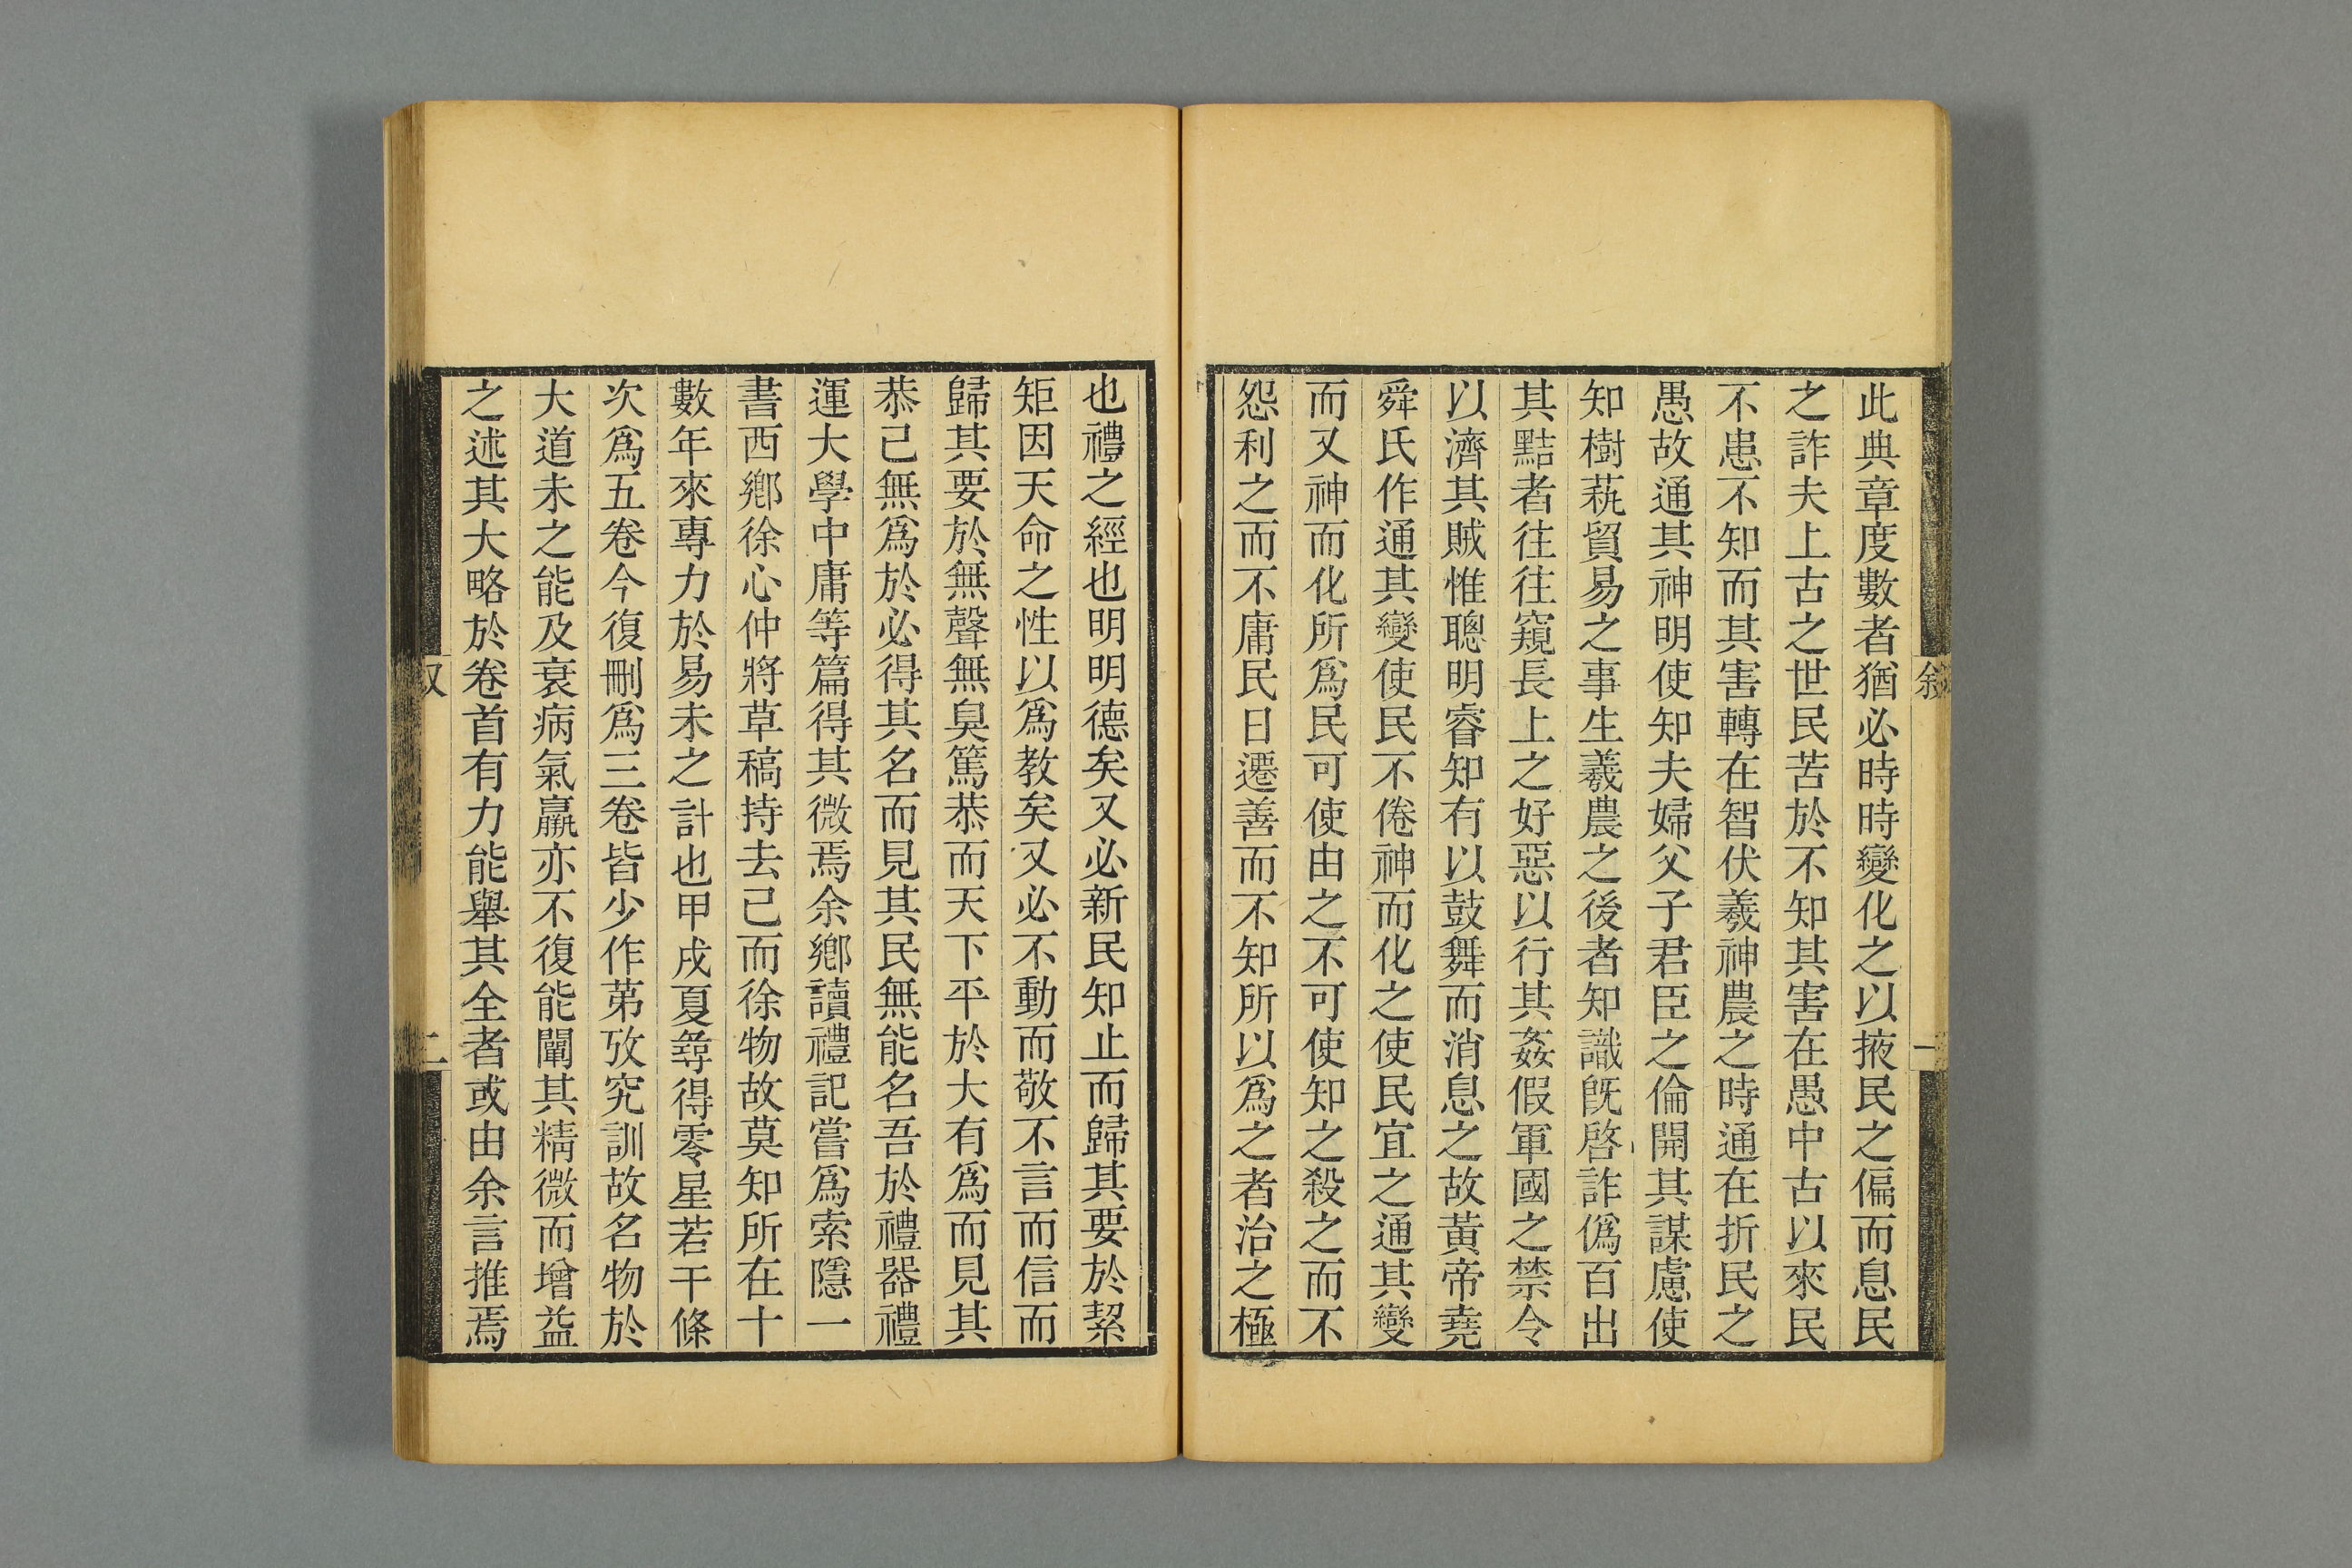 敘
一
此典章度數者猶必時時變化之以掖民之偏而息民
之詐夫上古之世民苦於不知其害在愚中古以來民
不患不知而其害轉在智伏羲神農之時通在折民之
愚故通其神明使知夫婦父子君臣之倫開其謀慮使
知樹蓺貿易之事生羲農之後者知識旣啓詐僞百出
其黠者往往窺長上之好惡以行其姦假軍國之禁令
以濟其賊惟聰明睿知有以鼓舞而消息之故黃帝堯
舜氏作通其變使民不倦神而化之使民宜之通其變
而又神而化所爲民可使由之不可使知之殺之而不
怨利之而不庸民日遷善而不知所以爲之者治之極
也禮之經也明明德矣又必新民知止而歸其要於絜
矩因天命之性以爲教矣又必不動而敬不言而信而
歸其要於無聲無臭篤恭而天下平於大有爲而見其
恭己無爲於必得其名而見其民無能名吾於禮器禮
運大學中庸等篇得其微焉余鄉讀禮記嘗爲索隱一
書西鄉徐心仲將草稿持去已而徐物故莫知所在十
數年來專力於易未之計也甲戌夏尋得零星若干條
次爲五卷今復刪爲三卷皆少作第攷究訓故名物於
大道未之能及衰病氣羸亦不復能闡其精微而增益
之述其大略於卷首有力能舉其全者或由余言推焉
二